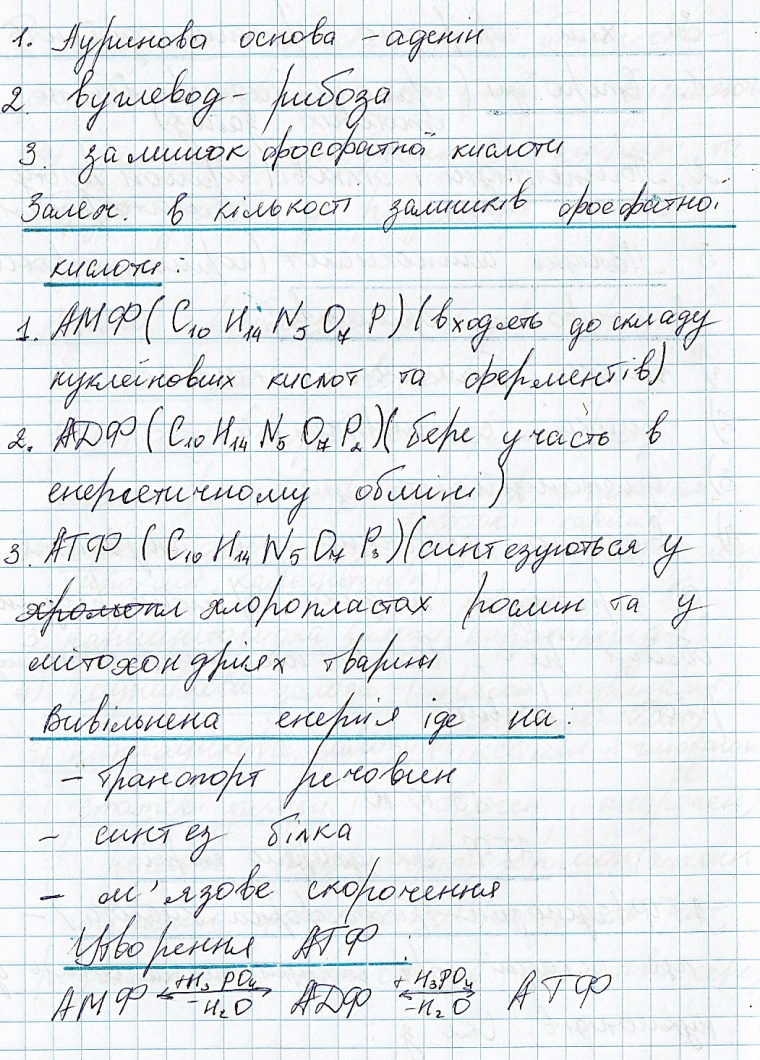 1. Пуринова основа – аденін
2. вуглевод – рибоза
3. залишок фосфатної кислоти
Залеж. в кількості залишків фосфатної
кислоти:
1. АМФ (C₁₀ H₁₄ N₅ O₇ P) (входять до складу
нуклеїнових кислот та ферментів)
2. АДФ (C₁₀ H₁₄ N₅ O₇ P₂) (бере участь в
енергетичному обміні)
3. АТФ (C₁₀ H₁₄ N₅ O₇ P₃) (синтезуються у
хлоропластах рослин та у
мітохондріях тварин
Вивільнена енергія іде на:
– транспорт речовин
– синтез білка
– м'язове скорочення
Утворення АТФ:
АМФ +H₃PO₄ ⟷ –H₂O АДФ +H₃PO₄ ⟷ –H₂O АТФ